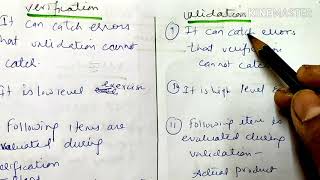 verification
It can catch errors
that validation cannot
catch.
It is low level exercise
Following items are
evaluated during
verification
validation
KINEMASTER
① It can catch errors
that verification
cannot catch
⑩ It is high level
⑪ Following items
evaluated during
validation-
Actual product